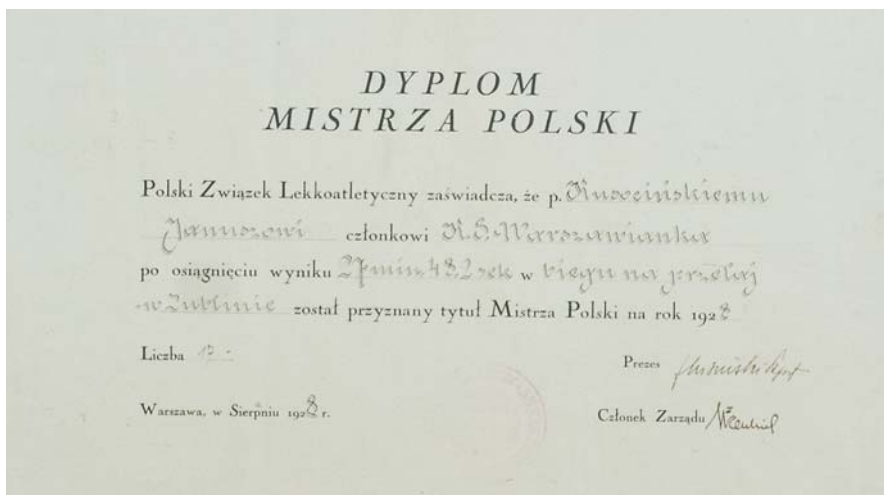 DYPLOM
MISTRZA POLSKI
Polski Związek Lekkoatletyczny zaświadcza, że p. Kusocińskiemu
Januszowi członkowi K.S. Warszawianka
po osiągnięciu wyniku 27 min. 48,2 sek w biegu na przełaj
w Lublinie został przyznany tytuł Mistrza Polski na rok 1928
Liczba
Prezes
Warszawa, w Sierpniu 1928 r.
Członek Zarządu